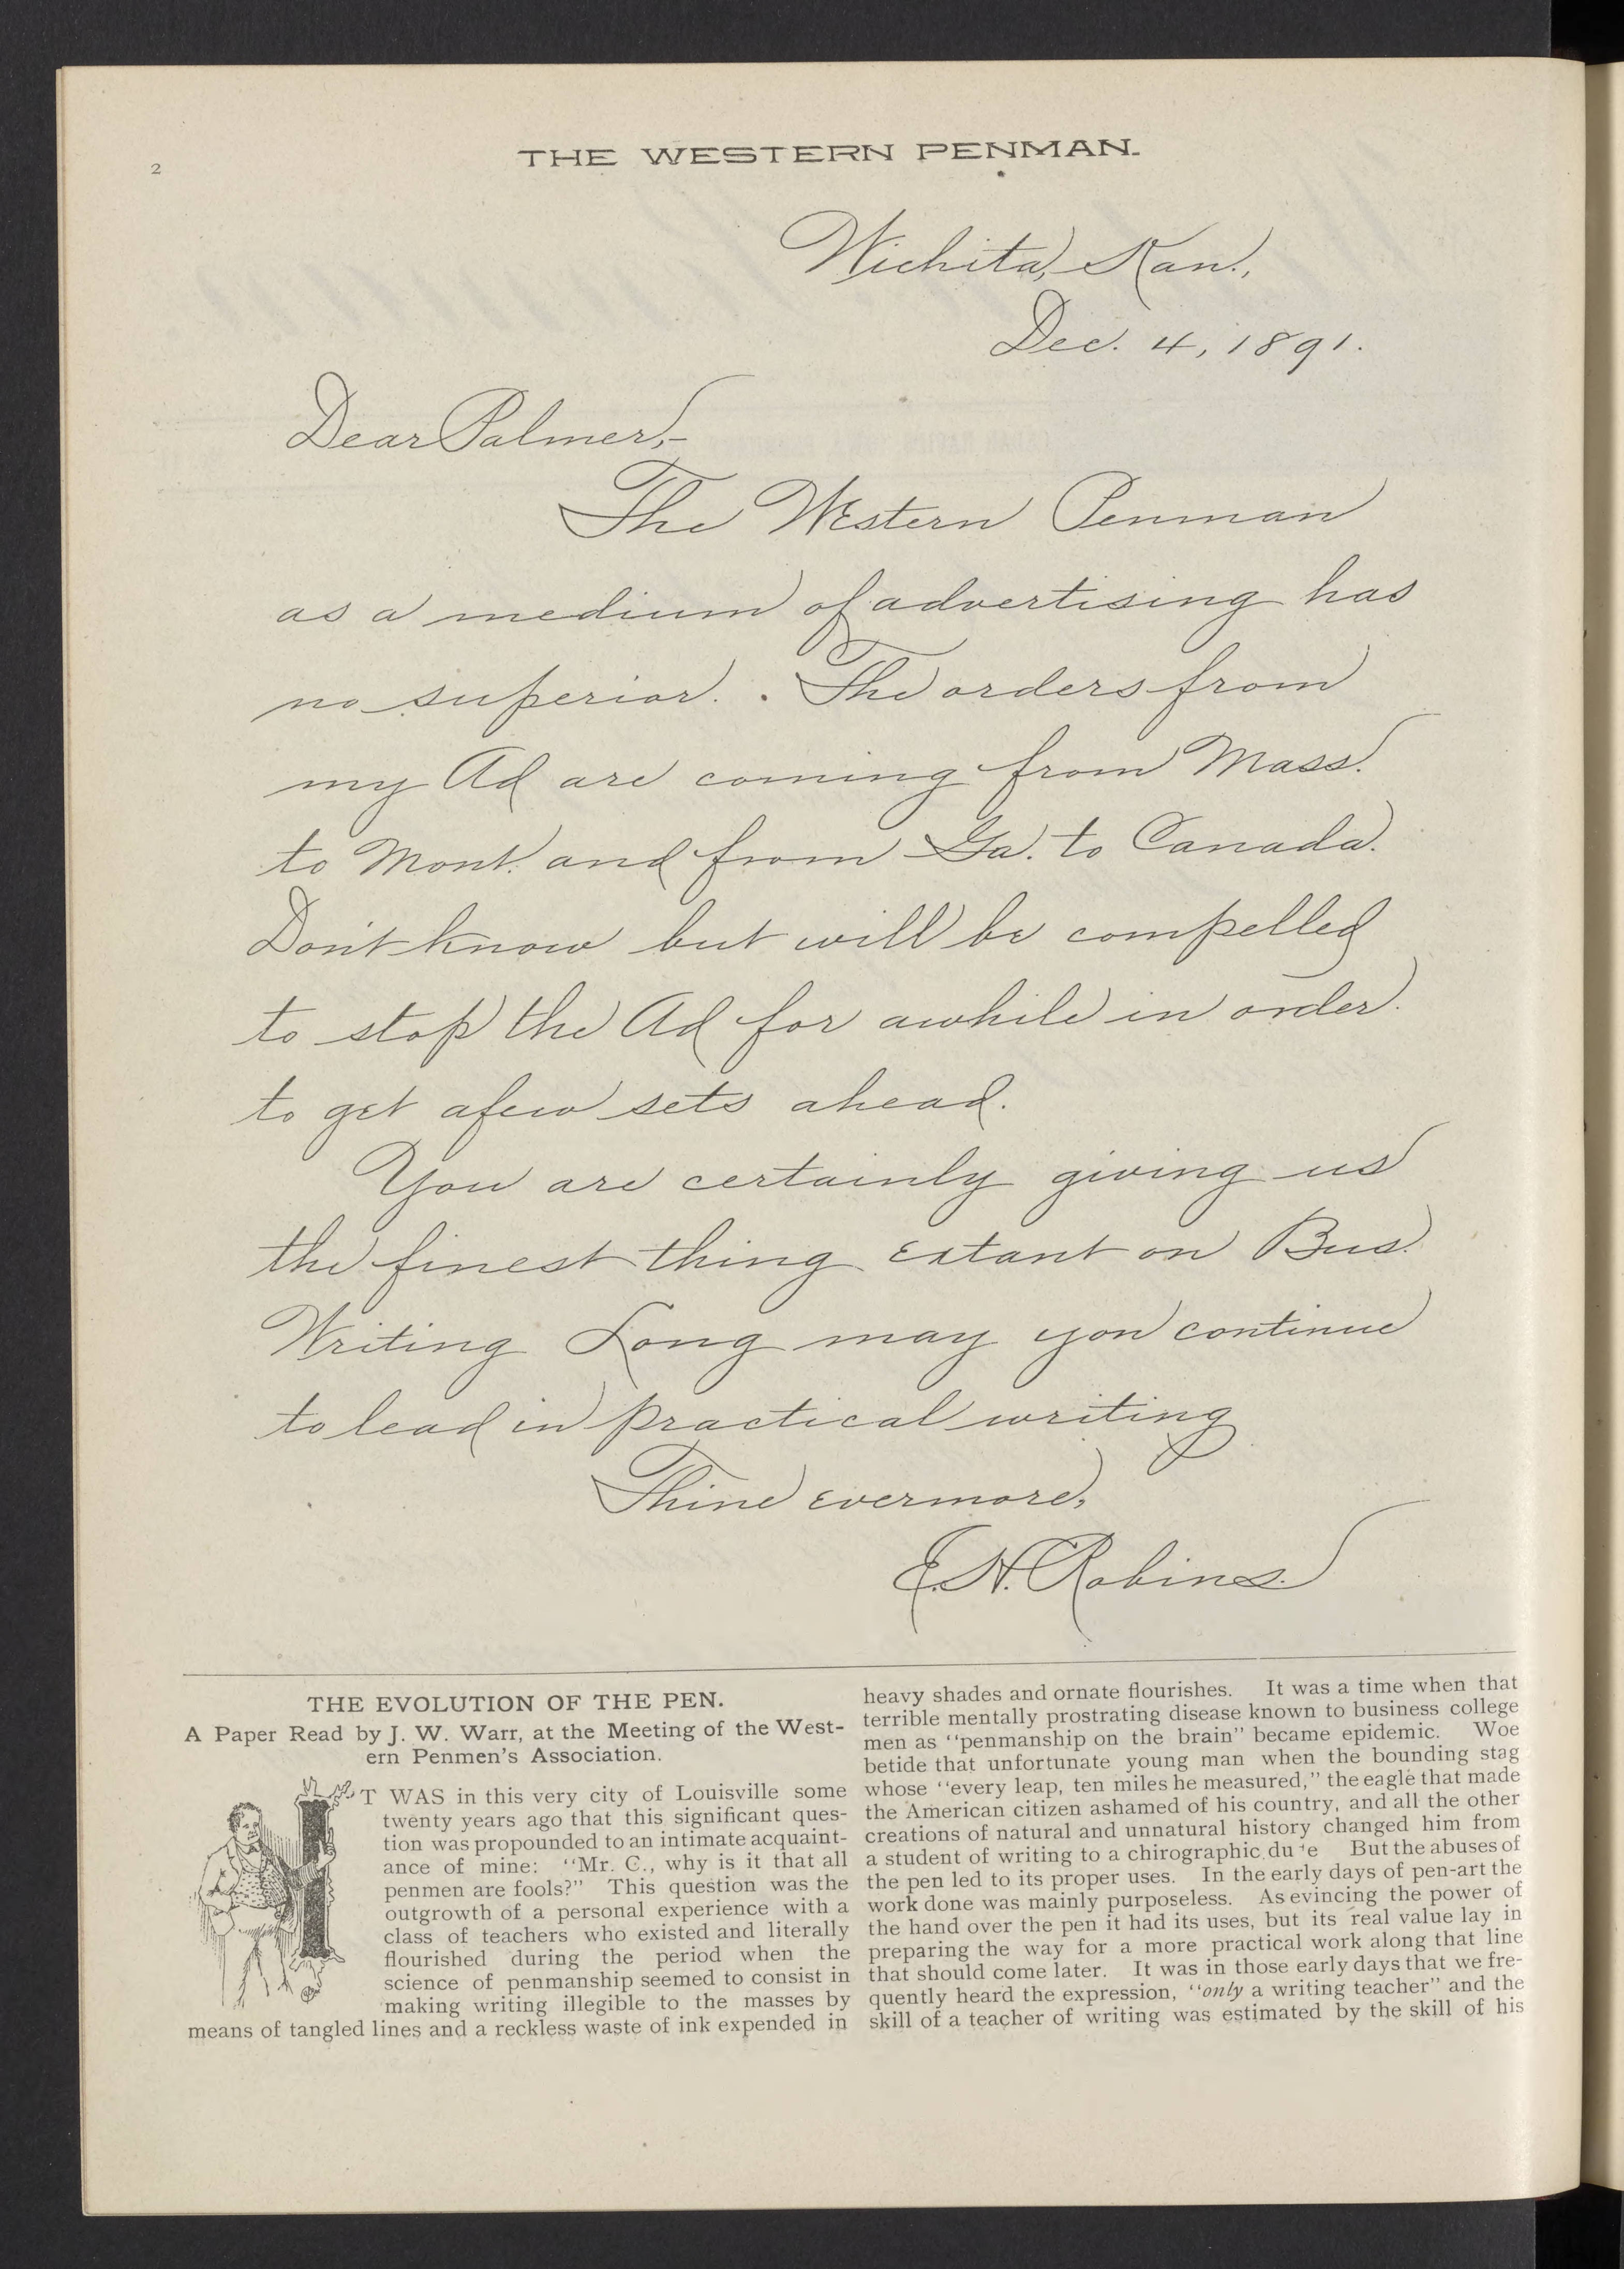 2
THE WESTERN PENMAN.
Wichita, Kan.,
Dec. 4, 1891.
Dear Palmer,-
The Western Penman
as a medium of advertising has
no superior. The orders from
my Ad are coming from Mass.
to Mont. and from Ga. to Canada.
Don't know but will be compelled
to stop the Ad for awhile in order
to get a few sets ahead.
You are certainly giving us
the finest thing extant on Bus.
Writing Long may you continue
to lead in practical writing
Thine evermore,
E. H. Robins.
THE EVOLUTION OF THE PEN.
A Paper Read by J. W. Warr, at the Meeting of the West-
ern Penmen's Association.
IT WAS in this very city of Louisville some
twenty years ago that this significant ques-
tion was propounded to an intimate acquaint-
ance of mine: "Mr. C., why is it that all
penmen are fools?" This question was the
outgrowth of a personal experience with a
class of teachers who existed and literally
flourished during the period when the
science of penmanship seemed to consist in
making writing illegible to the masses by
means of tangled lines and a reckless waste of ink expended in
heavy shades and ornate flourishes. It was a time when that
terrible mentally prostrating disease known to business college
men as "penmanship on the brain" became epidemic. Woe
betide that unfortunate young man when the bounding stag
whose "every leap, ten miles he measured," the eagle that made
the American citizen ashamed of his country, and all the other
creations of natural and unnatural history changed him from
a student of writing to a chirographic du'e But the abuses of
the pen led to its proper uses. In the early days of pen-art the
work done was mainly purposeless. As evincing the power of
the hand over the pen it had its uses, but its real value lay in
preparing the way for a more practical work along that line
that should come later. It was in those early days that we fre-
quently heard the expression, "only a writing teacher" and the
skill of a teacher of writing was estimated by the skill of his